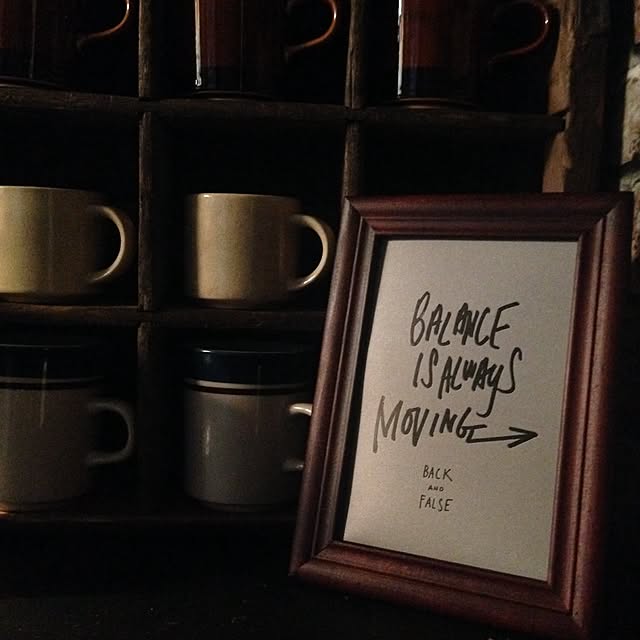 BALANCE
IS ALWAYS
MOVING →
BACK
AND
FALSE